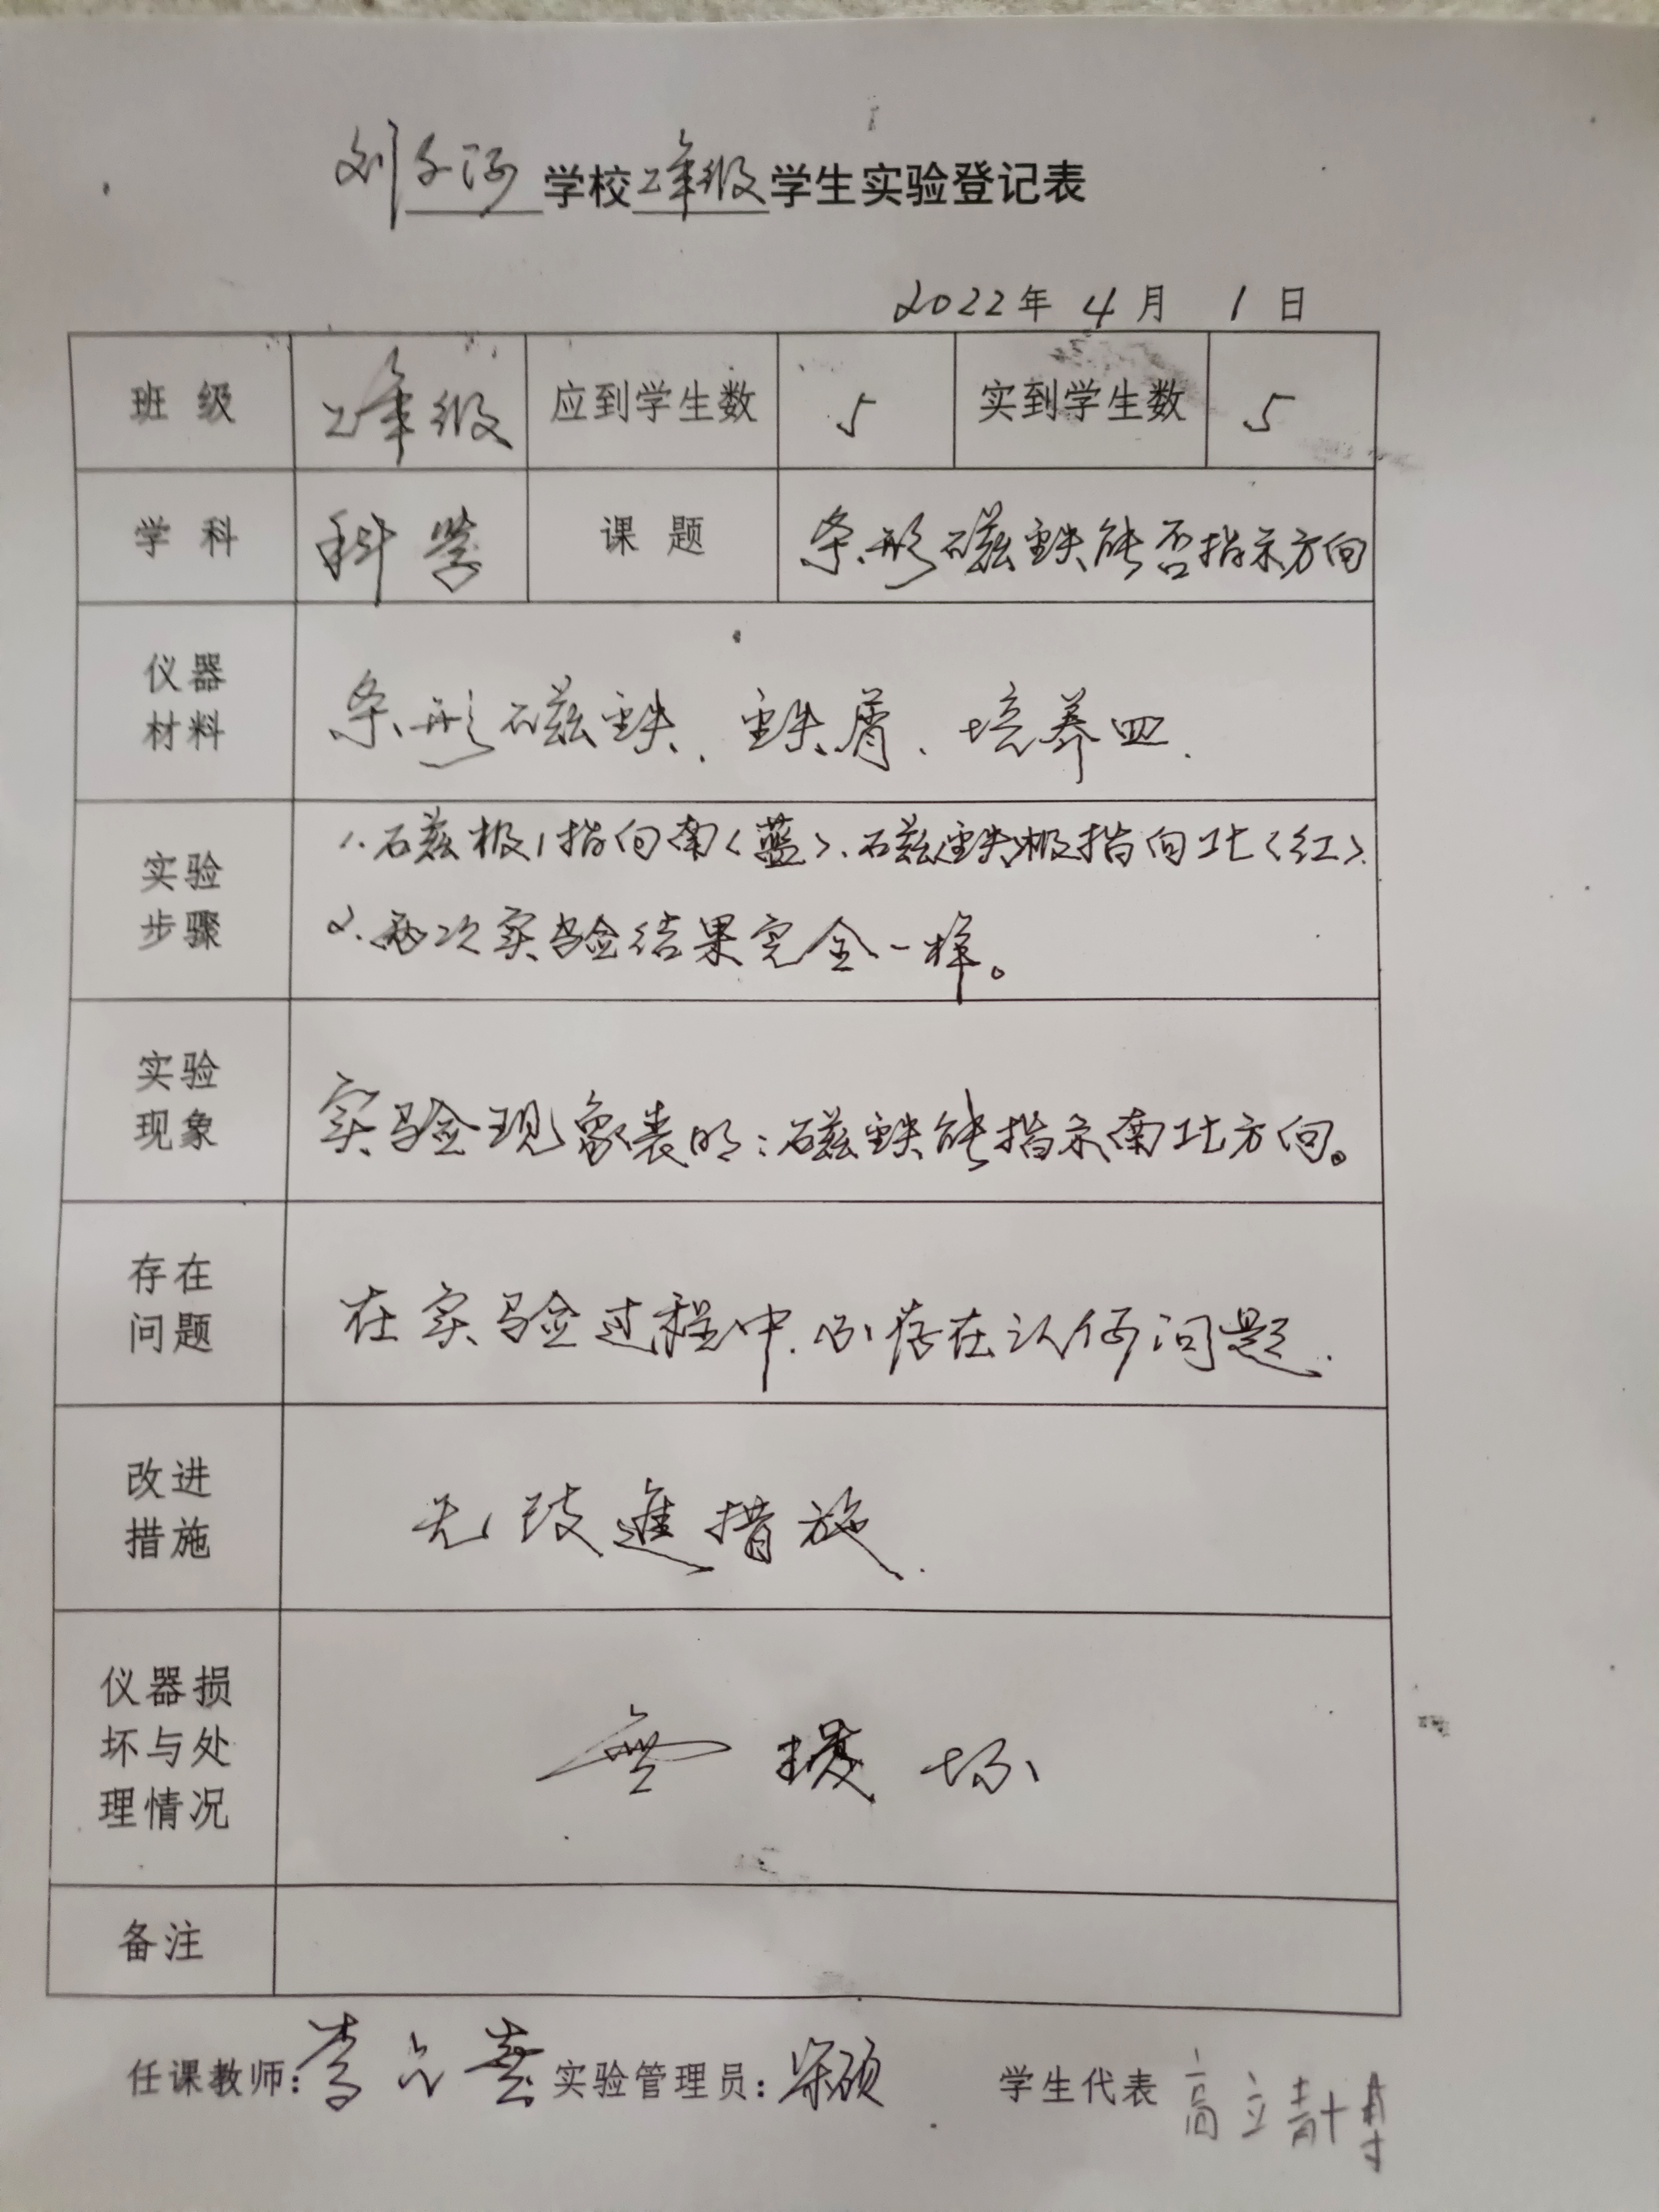 刘子河学校2年级学生实验登记表
2022年 4月 1日
班 级 2年级 应到学生数 5 实到学生数 5
学 科 科学 课 题 条形磁铁能否指示方向
仪器
材料
条形磁铁、铁屑、培养皿.
实验
步骤
1.磁极1指向南<蓝>.磁铁极指向北<红>.
2.两次实验结果完全一样。
实验
现象
实验现象表明:磁铁能指示南北方向。
存在
问题
在实验过程中.不存在认何问题.
改进
措施
无改進措施.
仪器损
坏与处
理情况
無损坏
备注
任课教师:李 实验管理员: 学生代表 高立